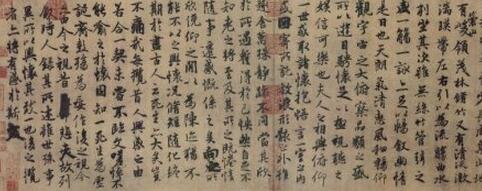 有崇山峻領茂林脩竹又有清流激
湍暎帶左右引以為流觴曲水
列坐其次雖無絲竹管弦之
盛一觴一詠亦足以暢敘幽情
是日也天朗氣清惠風和暢仰
觀宇宙之大俯察品類之盛
所以遊目騁懷足以極視聽之
娛信可樂也夫人之相與俯仰
一世或取諸懷抱悟言一室之內
或因寄所託放浪形骸之外雖
趣舍萬殊靜躁不同當其欣
於所遇蹔得於己怏然自足不
知老之將至及其所之既惓情
隨事遷感慨係之矣向之所
欣俛仰之閒以為陳迹猶不
能不以之興懷況脩短隨化終
期於盡古人云死生亦大矣豈
不痛哉每攬昔人興感之由
若合一契未嘗不臨文嗟悼不
能喻之於懷固知一死生為虛
誕齊彭殤為妄作後之視今
亦由今之視昔悲夫故列
敘時人錄其所述雖世殊事
異所以興懷其致一也後之攬
者亦將有感於斯